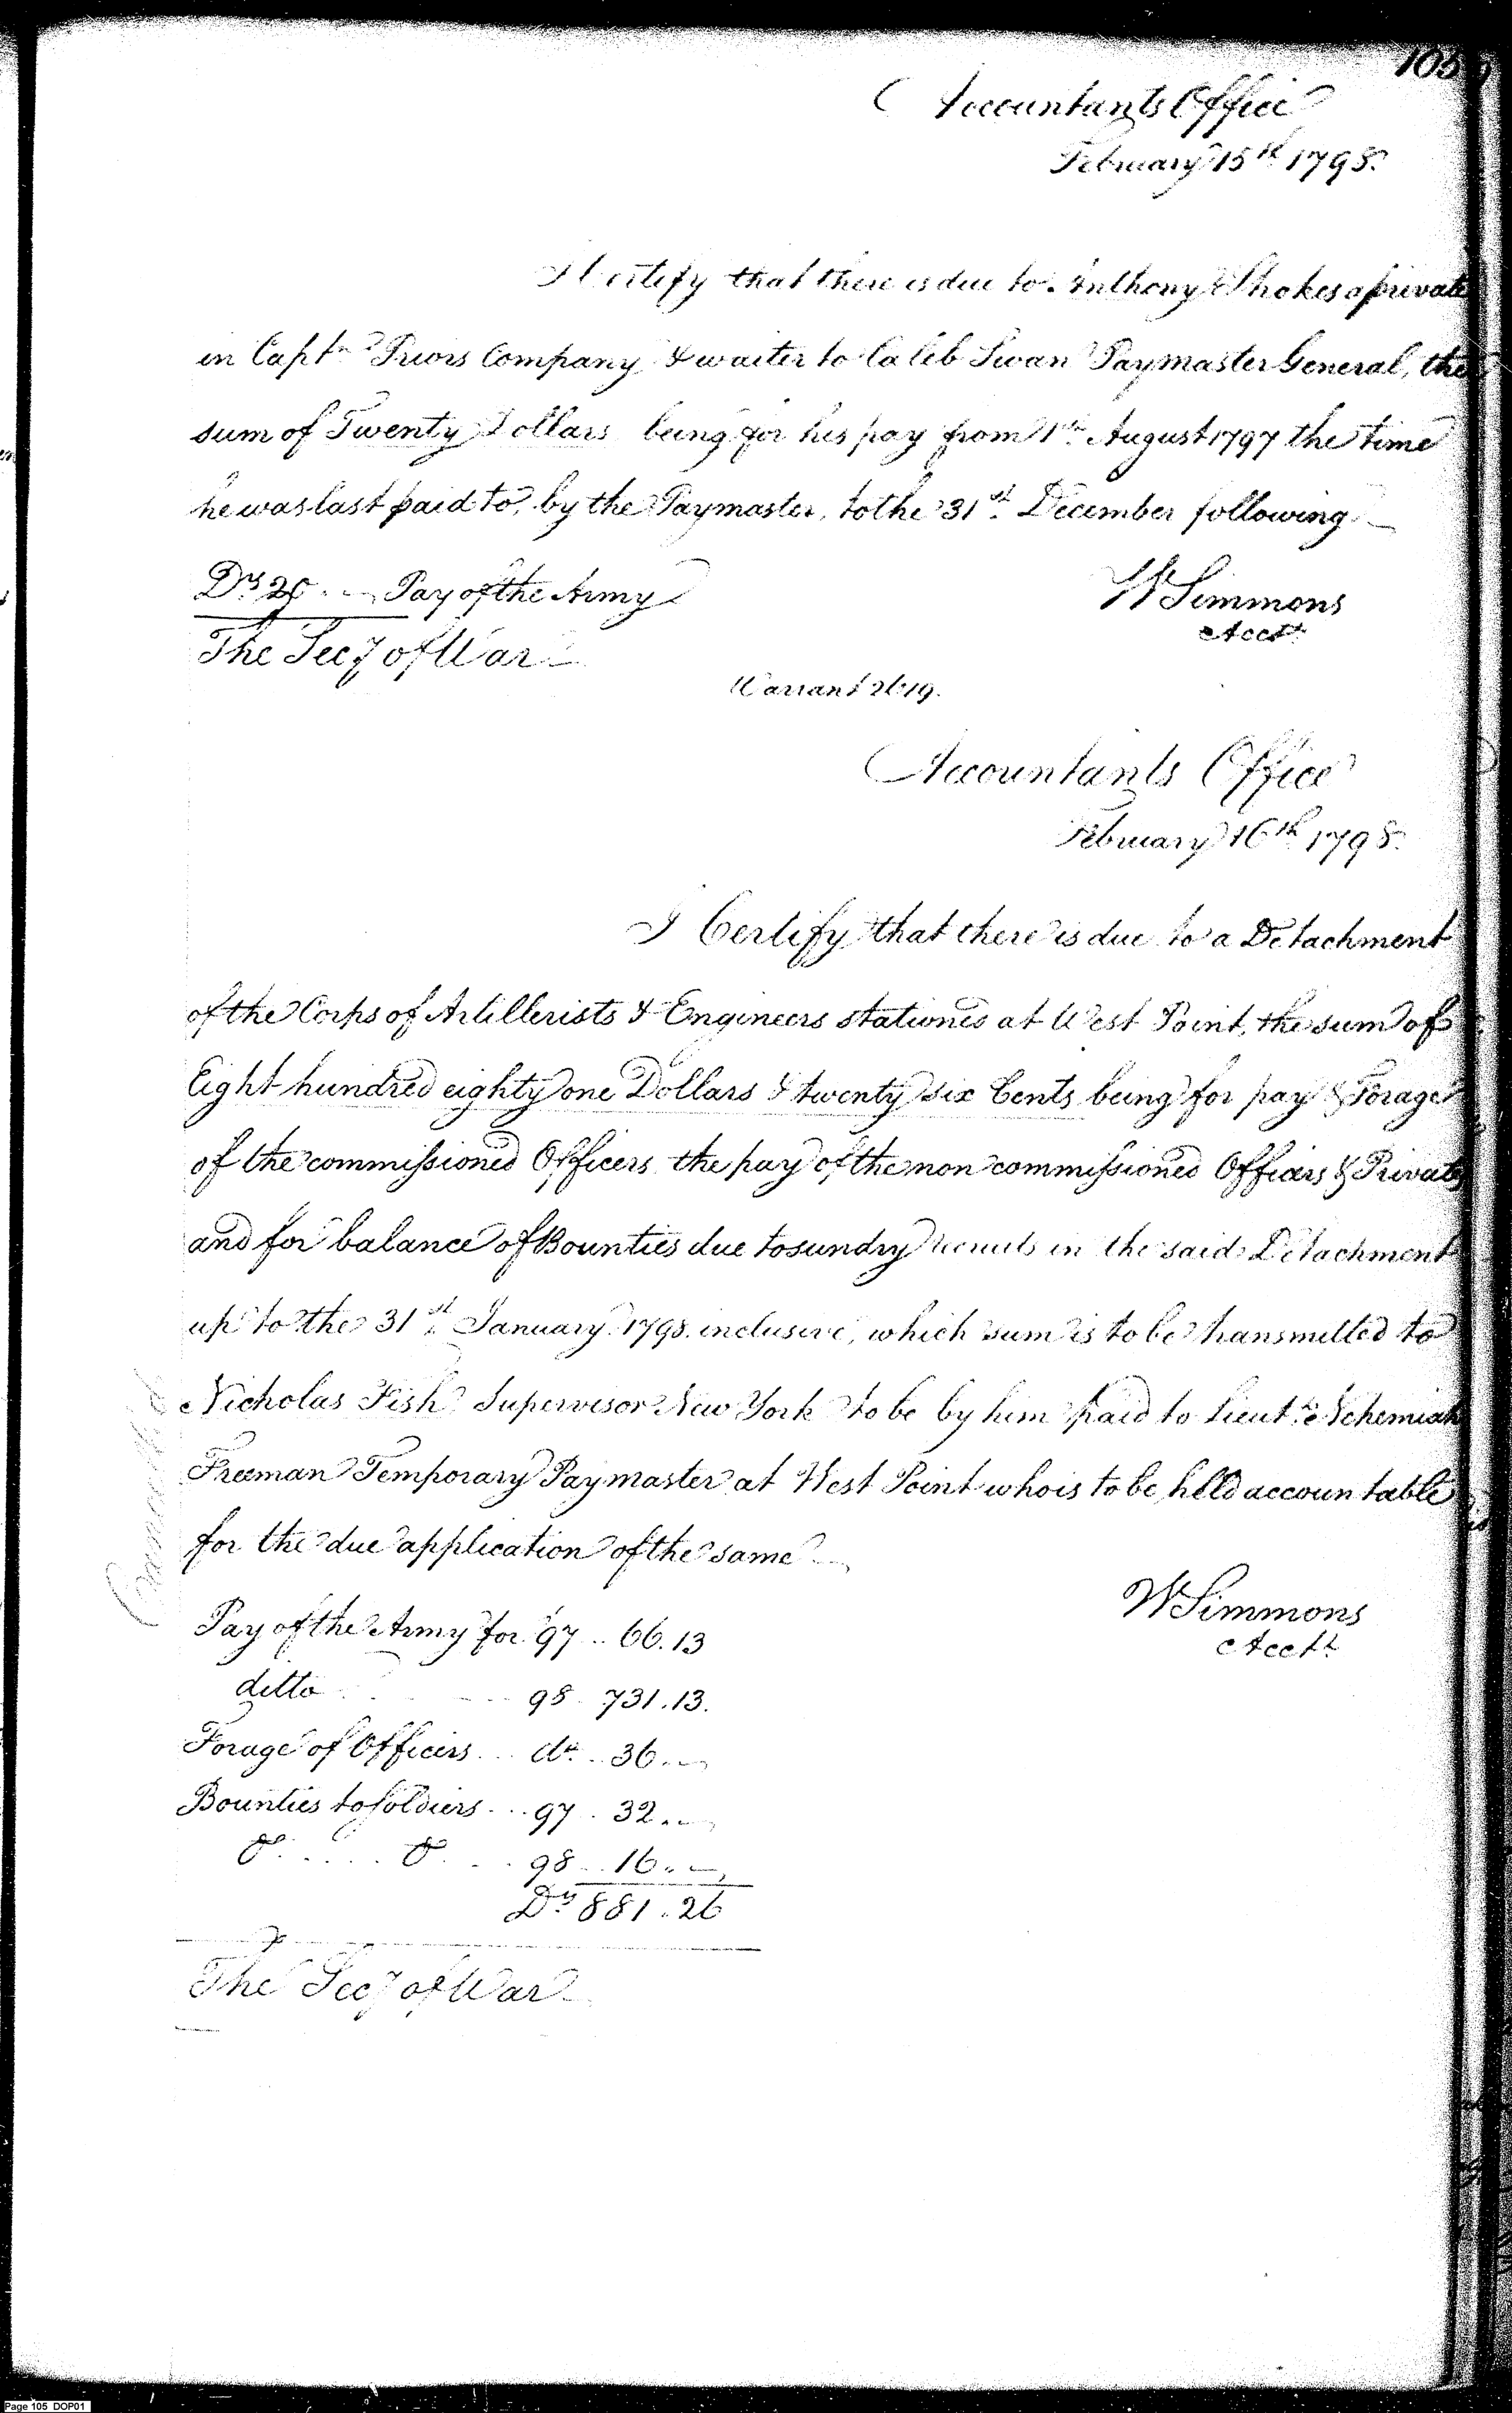 105
Accountants Office
February 15th 1798.
I Certify that there is due to Anthony Shokes a private
in Captn Priors Company & waiter to Caleb Swan Paymaster General, the
sum of Twenty Dollars being for his pay from 1st August 1797 the time
he was last paid to, by the Paymaster, to the 31st December following
Drs 20 . — Pay of the Army
W Simmons
Acctt
The Secy of War
Warrant 2619.
Accountants Office
February 16th 1798.
I Certify that there is due to a Detachment
of the Corps of Artillerists & Engineers stationed at West Point, the sum of
Eight hundred eighty one Dollars & twenty six Cents being for pay & Forage
of the commissioned Officers the pay of the non commissioned Officers & Privates
and for balance of Bounties due to sundry recruits in the said Detachment
up to the 31st January 1798. inclusive, which sum is to be transmitted to
Nicholas Fish Supervisor New York to be by him paid to Lieutt Nehemiah
Freeman Temporary Paymaster at West Point who is to be held accountable
for the due application of the same
W Simmons
Acctt
Pay of the Army for 97 .. 66.13
ditto 98 . 731.13.
Forage of Officers ... do .. 36. —
Bounties to soldiers ... 97 . 32. —
do ..... do ... 98 .. 16. —
Drs 881.26
The Secy of War
Page 105 DOP01